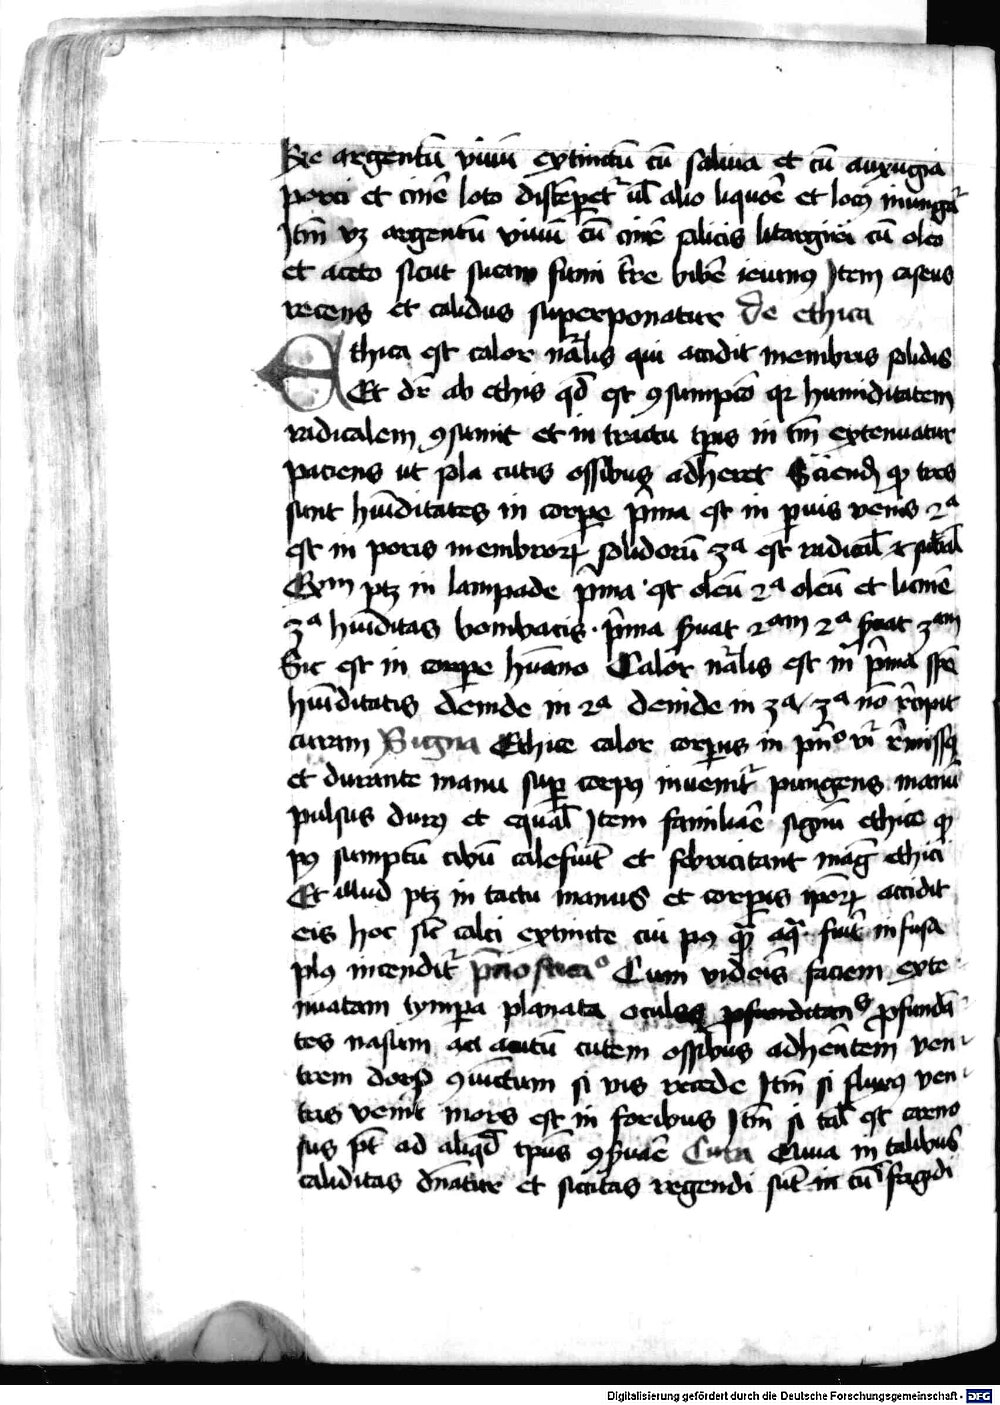 Sic argentū viuū extinctū cū saliua et cū auxugia
porci et cinē loto distēpet᷑ ul̄ alio liquoē et locꝫ inungat᷑
Itm̄ vꝫ argentū viuū cū cinē silicis litargirii cū oleo
et aceto sicut sucam fumi tr̄re bibē ieiunꝰ Item caseus
recens et calidus superponatur De ethica
Ethica est calor nr̄alis qui accidit membris solidis
Et dr̄ ab ethis qd̄ est ꝯsumpcō qr humiditatem
radicalem ꝯsumit et in tractu tp̄is in tm̄ extenuatur
paciens ut sola cutis ossibus adheret Sciend̄ ꝙ tres
sunt hūiditates in corpore p̄ma est in paruis venis 2ᵃ
est in poris membroꝝ solidorū 3ᵃ est radical̄ et subal̄
Exm ptꝫ in lampade p̄ma est oleū 2ᵃ oleū et lucinē
3ᵃ hūiditas bombacis · p̄ma ẜuat 2ᵃᵐ 2ᵃ ẜuat 3ᵃᵐ
Sic est in corpore hūano Calor nr̄alis est in p̄ma spē
hūiditatis deinde in 2ᵃ deinde in 3ᵃ / 3ᵃ nō recipit
curam Signa Ethice calor corꝑis in pn̄ᵒ vr̄ remissꝰ
et durante manu suꝑ corpꝰ inuenit᷑ pungens manū
pulsus durꝰ et equal̄ Item familiarē signū ethice ꝙ
pꝰ sumptū cibū calefiūt et febricitant maḡ ethici
Et illud ptꝫ in tactu manus et corꝑis ip̄oꝝ accidit
eis hoc sic̄ calci extincte cui pꝰ qm̄ aqͣ fuit᷑ infusa
plꝰ incendit᷑ Cum videris faciem exte
nuatam tympora planata oculos profunditans profunda
tes nasum ac̄ acutū cutem ossibus adherentem ven
trem dorso ꝯiūctum si vis recede Itm̄ si fluxꝰ ven
tris venit mors est in foribus Itm̄ si tal̄ est carno
sus pt̄ ad aliqd̄ tp̄us ꝯẜuare Cura Cum in talibus
caliditas dn̄atur et siccitas regendi sūt in cū frigidi
Digitalisierung gefördert durch die Deutsche Forschungsgemeinschaft - DFG